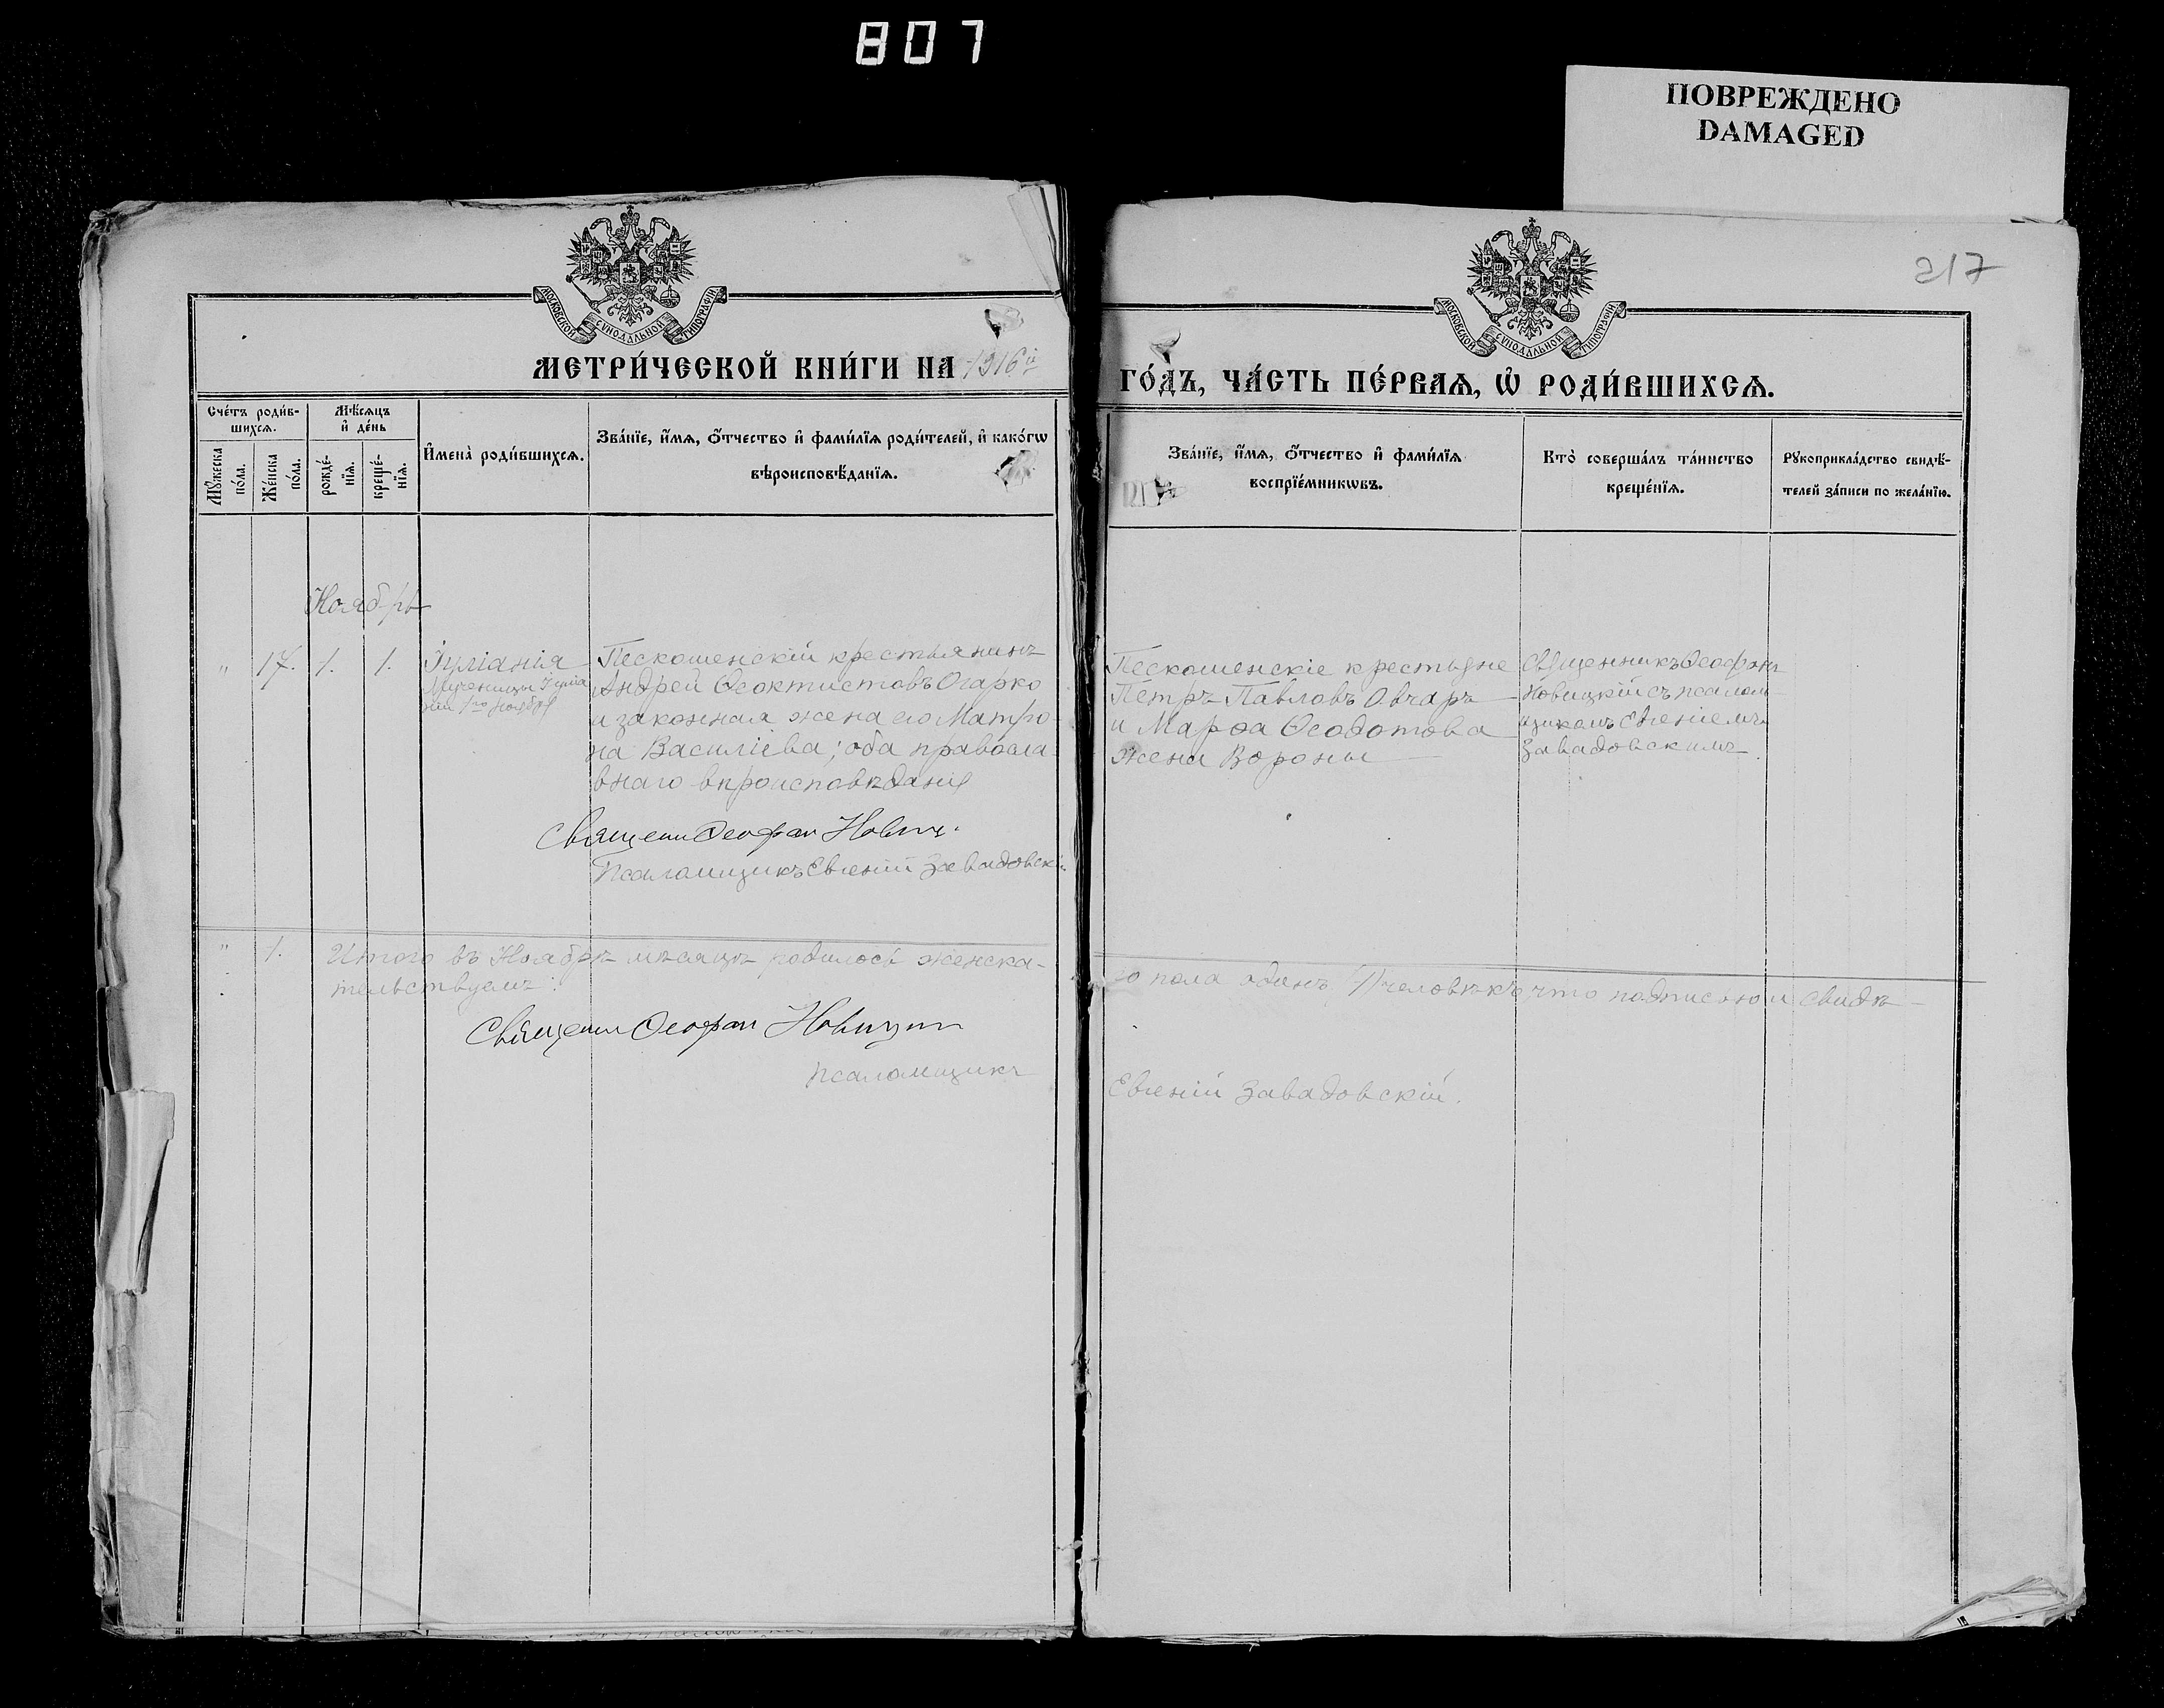 807
ПОВРЕЖДЕНО
DAMAGED
217
МОСКОВСКОЙ СѴНОДАЛЬНОЙ ТИПОГРАФІИ
МОСКОВСКОЙ СѴНОДАЛЬНОЙ ТИПОГРАФІИ
МЕТРИ́ЧЕСКОЙ КНИ́ГИ НА 1916й
ГО́ДЪ, ЧА́СТЬ ПЕ́РВАѦ, Ѽ РОДИ́ВШИХСѦ.
Сче́тъ роди́в-
шихсѧ.
Мѣ́сѧцъ
и҆ де́нь
Мꙋ́жеска
по́ла.
Же́нска
по́ла.
рожде́-
нїѧ.
креще́-
нїѧ.
И҆мена̀ роди́вшихсѧ.
Зва́нїе, и҆́мѧ, ѻ҆́тчество и҆ фами́лїѧ роди́телей, и҆ како́гѡ
вѣроисповѣ́данїѧ.
Зва́нїе, и҆́мѧ, ѻ҆́тчество и҆ фами́лїѧ
воспрїе́мникѡвъ.
Кто̀ соверша́лъ та́инство
креще́нїѧ.
Рꙋкоприкла́дство свидѣ́-
телей за́писи по жела́нїю.
Ноябрь
" 17. 1. 1.
Іуліанія
Мученицы Іуліа
ніи 1го ноября
Пескошенскій крестьянинъ
Андрей Ѳеоктистовъ Огарко
и законная жена его Матро-
на Василіева; оба правосла-
внаго вѣроисповѣданія
Священ Ѳеофан Новиц.
Псаломщикъ Евгеній Завадовскій
Пескошенскіе крестьяне
Петръ Павловъ Овчаръ
и Марѳа Ѳеодотова
жена Вороны
Священникъ Ѳеофанъ
Новицкій съ псалом-
щикомъ Евгеніемъ
Завадовскимъ
" 1. Итого въ Ноябрѣ мѣсяцѣ родилось женска-
го пола одинъ (1) человѣкъ, что подписью и свидѣ-
тельствуемъ:
Священ Ѳеофан Новицкій
Псаломщикъ
Евгеній Завадовскій.